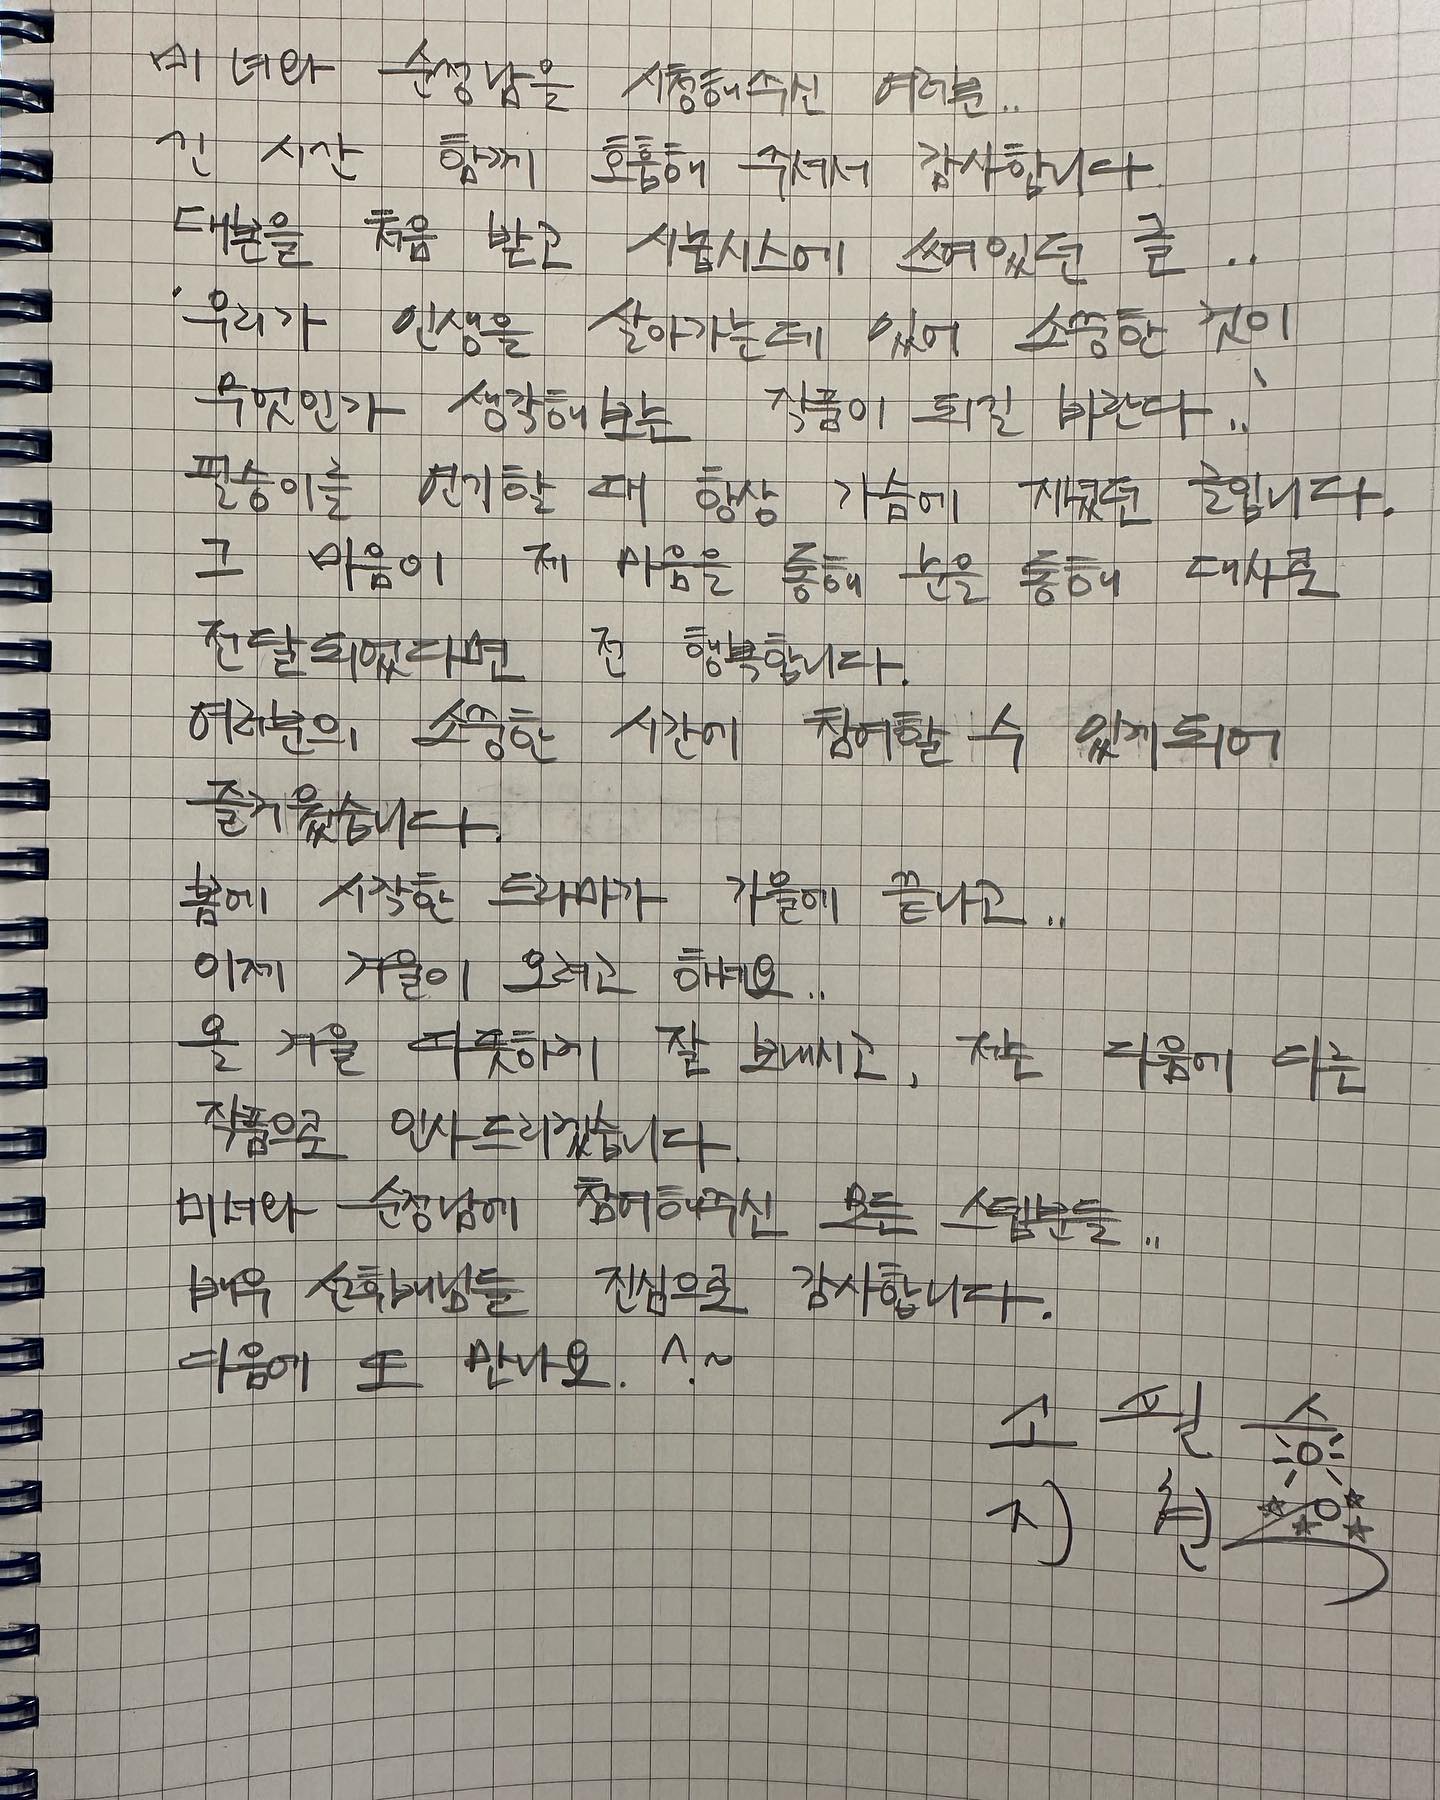 미녀와 순정남을 시청해주신 여러분..
긴 시간 함께 호흡해 주셔서 감사합니다.
대본을 처음 받고 시놉시스에 쓰여있던 글..
'우리가 인생을 살아가는데 있어 소중한 것이
무엇인가 생각해보는 작품이 되길 바란다..'
필승이를 연기할 때 항상 가슴에 새겼던 글입니다.
그 마음이 제 마음을 통해 눈을 통해 대사로
전달되었다면 전 행복합니다.
여러분의 소중한 시간에 참여할 수 있게되어
즐거웠습니다.
봄에 시작한 드라마가 가을에 끝나고..
이제 겨울이 오려고 하네요..
올 겨울 따뜻하게 잘 보내시고, 저는 다음에 다른
작품으로 인사드리겠습니다.
미녀와 순정남에 참여해주신 모든 스텝분들..
배우 선후배님들 진심으로 감사합니다.
다음에 또 만나요. ^.~
고 필승
지현